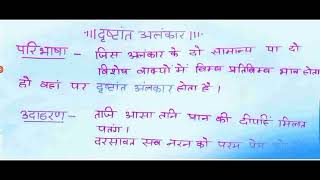 ॥दृष्टांत अलंकार॥
परिभाषा - जिस अलंकार के दो सामान्य या दो
विशेष वाक्यों में बिम्ब प्रतिबिम्ब भाव होता
हो वहां पर दृष्टांत अलंकार होता है ।
उदाहरण - तजि आसा तनि प्रान की दीपहिं मिलत
पतंग ।
दरसावत सब नरन को परम प्रेम